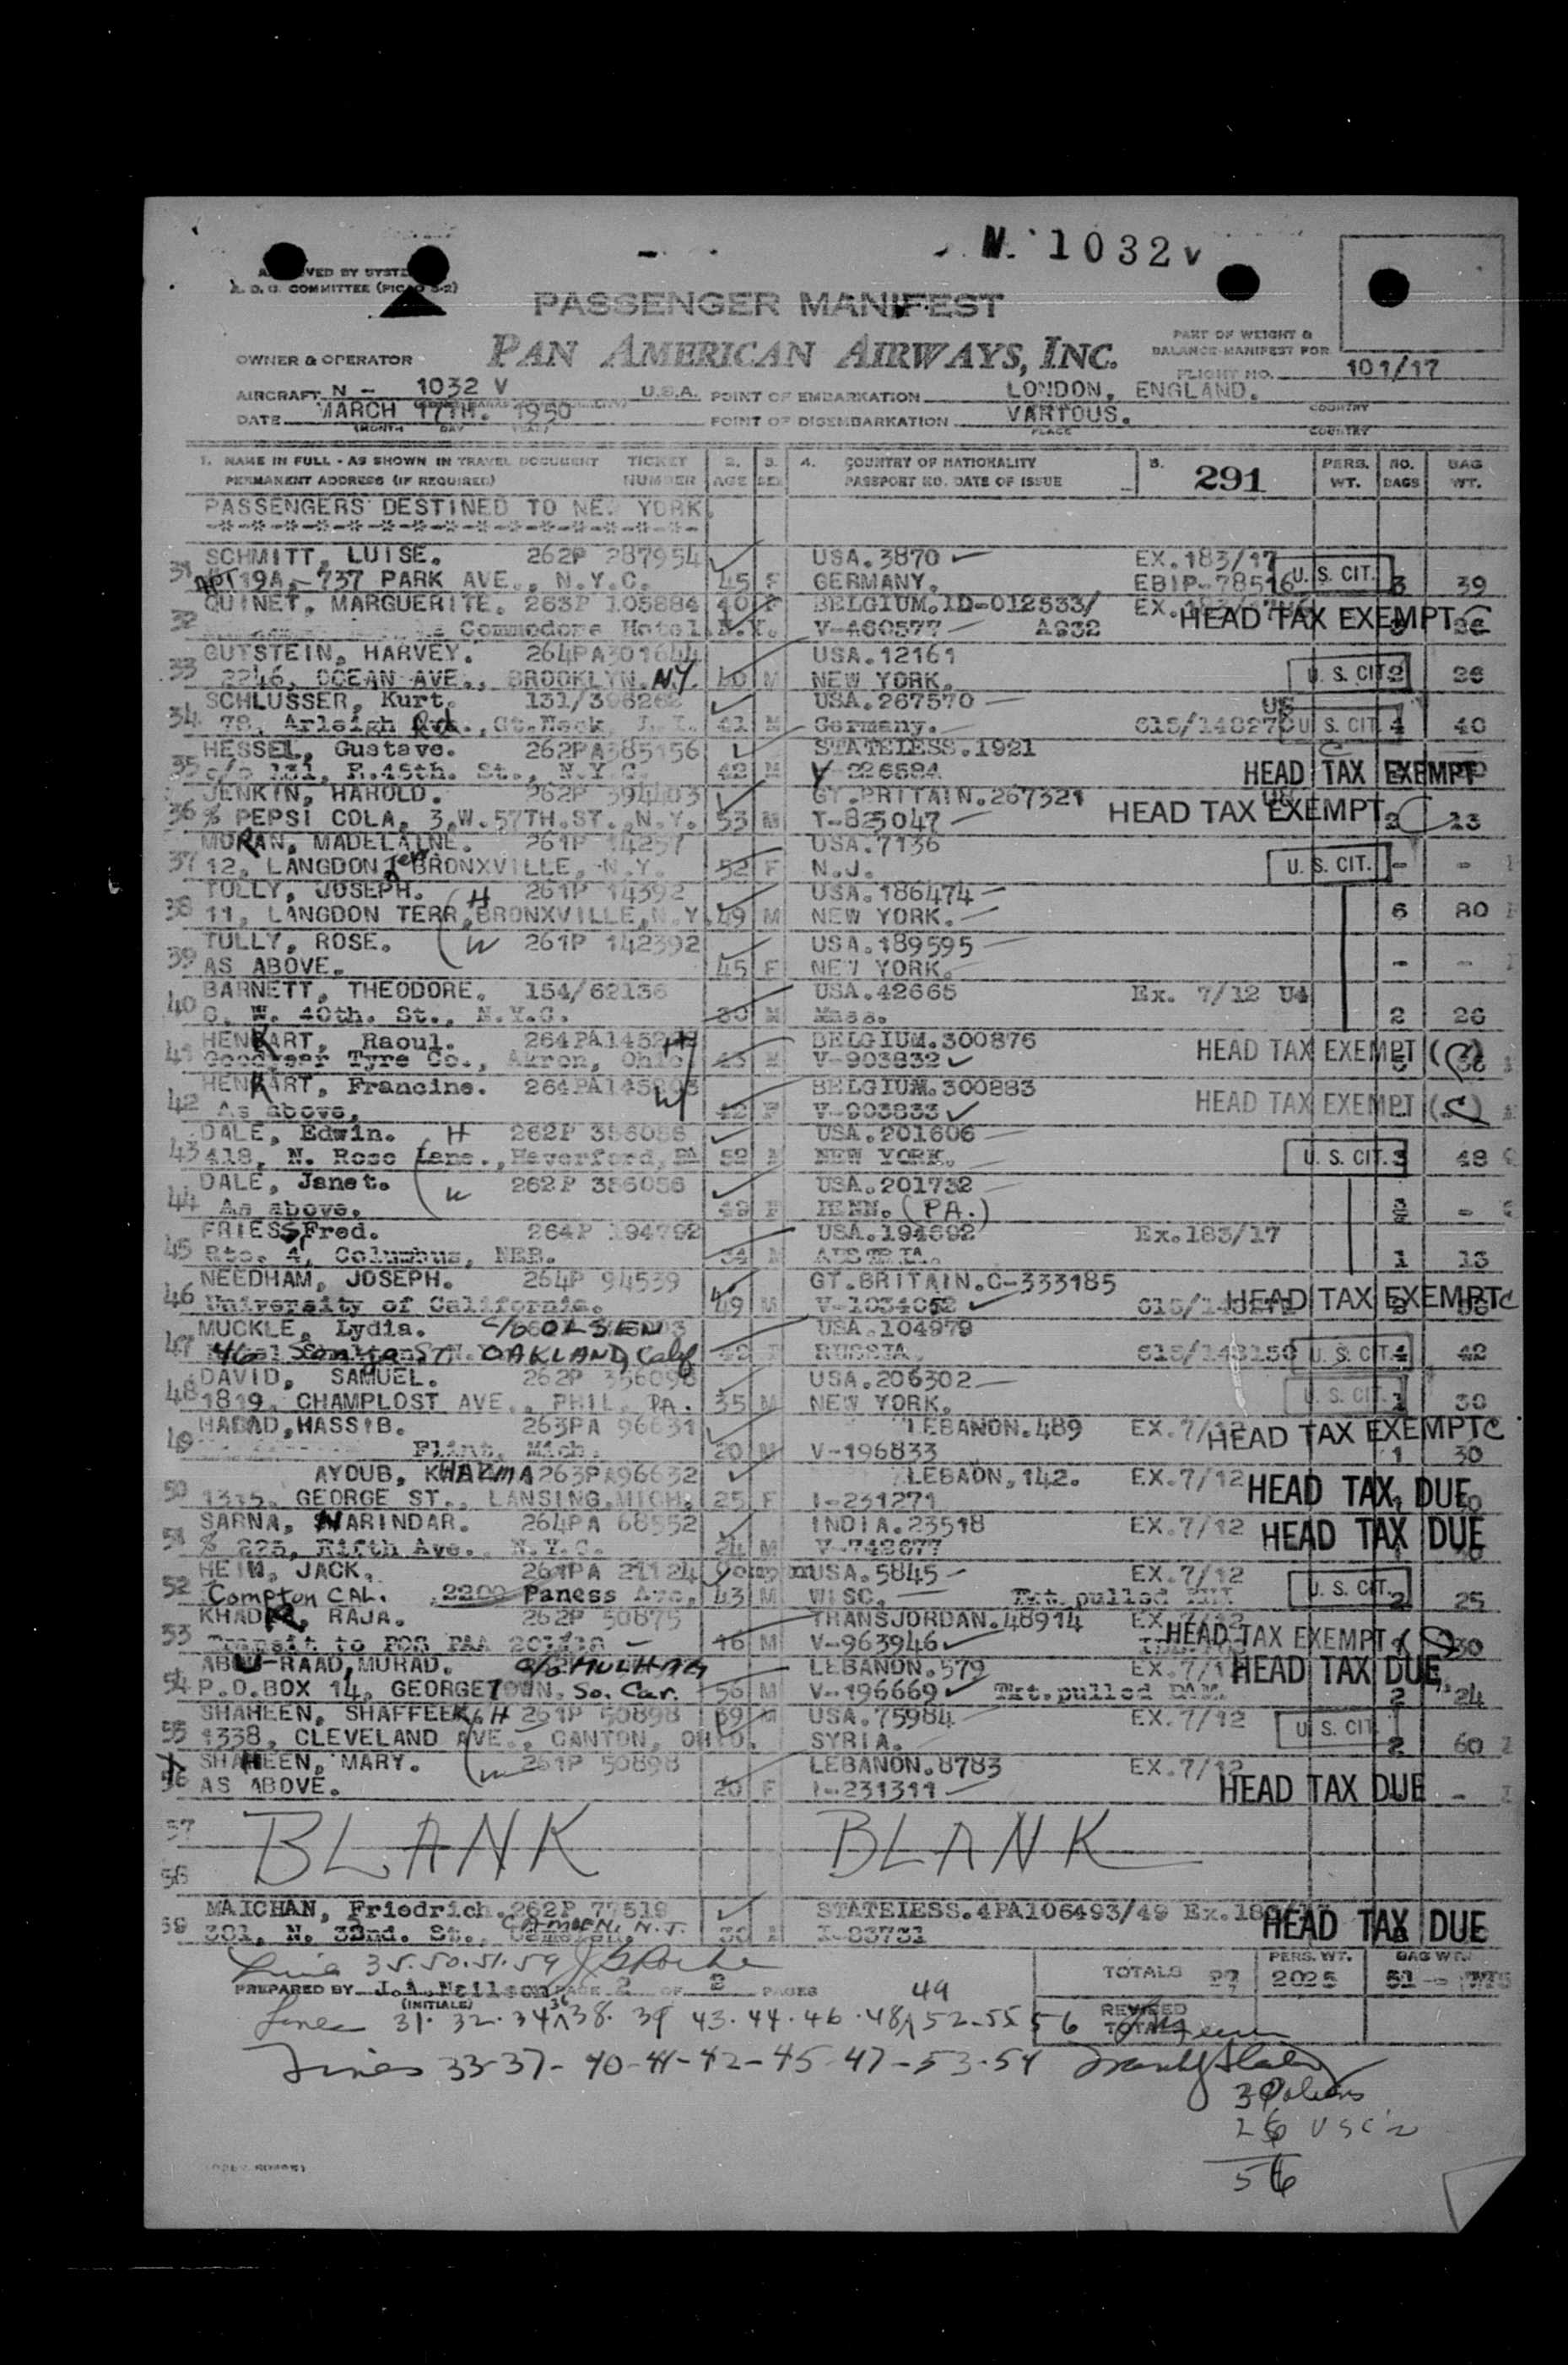 N. 1032 v
PASSENGER MANIFEST
PAN AMERICAN AIRWAYS, INC.
PART OF WEIGHT &
BALANCE MANIFEST FOR
FLIGHT NO. 101/17
OWNER & OPERATOR
AIRCRAFT N - 1032 V U.S.A. POINT OF EMBARKATION LONDON, ENGLAND.
DATE MARCH 17TH. 1950 POINT OF DISEMBARKATION VARIOUS.
(MONTH DAY PLACE COUNTRY
1. NAME IN FULL - AS SHOWN IN TRAVEL DOCUMENT TICKET 2. 3. 4. COUNTRY OF NATIONALITY 5. 291 PERS. NO. BAG
PERMANENT ADDRESS (IF REQUIRED) NUMBER AGE SEX PASSPORT NO. DATE OF ISSUE WT. BAGS WT.
PASSENGERS DESTINED TO NEW YORK.
31 SCHMITT, LUISE. 262P 287954 USA.3870 EX.183/17
APT 19A,-737 PARK AVE., N.Y.C. 45 F GERMANY. EBIP-78516 U. S. CIT. 3 39
32 QUINET, MARGUERITE. 263P 105884 40 F BELGIUM.ID-012533/
Commodore Hotel N.Y. V-460577 A932 HEAD TAX EXEMPT C
33 GUTSTEIN, HARVEY. 264PA301644 USA.12161
2246, OCEAN AVE., BROOKLYN. N.Y. M NEW YORK. U. S. CIT. 2 26
34 SCHLUSSER, Kurt. USA.267570
78, Arleigh Rd., Gt.Neck, L.I. 41 M Germany. 615/148270 U. S. CIT. 4 40
35 HESSEL, Gustave. 262PA385156 STATELESS.1921
c/o 131, E.45th. St., N.Y.C. 42 M V-226584 HEAD TAX EXEMPT
36 JENKIN, HAROLD. 262P 394403 GT.BRITAIN.267321
% PEPSI COLA, 3,W.57TH.ST., N.Y. 53 M T-825047 HEAD TAX EXEMPT C 2 13
37 MORAN, MADELAINE. 261P 14257 USA.7136
12, LANGDON Terr BRONXVILLE, N.Y. 52 F N.J. U. S. CIT. - -
38 TULLY, JOSEPH. H 261P 14392 USA.186474
11, LANGDON TERR, BRONXVILLE, N.Y. 49 M NEW YORK. 6 80
39 TULLY, ROSE. W 261P 142392 USA.189595
AS ABOVE. 45 F NEW YORK. - -
40 BARNETT, THEODORE. 154/62136 USA.42665 Ex. 7/12 U4
W. 40th. St., N.Y.C. 30 M Mass. 2 26
41 HENKART, Raoul. H BELGIUM.300876
Goodyear Tyre Co., Akron, Ohio M V-903832 HEAD TAX EXEMPT (C)
42 HENKART, Francine. W BELGIUM.300883
As above. 42 F V-903833 HEAD TAX EXEMPT (C)
43 DALE, Edwin. H 262P 356056 USA.201606
418, N. Rose Lane., Haverford, PA 52 M NEW YORK. U. S. CIT. 3 48
44 DALE, Janet. W 262P 356056 USA.201732
As above. 49 F PENN. (PA.) -
45 FRIESS, Fred. 264P 194792 USA.194692 Ex.183/17
Rte. 4, Columbus, NEB. 34 M AUSTRIA. 1 13
46 NEEDHAM, JOSEPH. 264P 94539 GT.BRITAIN.C-333185
University of California. 49 M V-1034052 HEAD TAX EXEMPT C
47 MUCKLE, Lydia. c/o OLSEN USA.104979
46 ST. OAKLAND, Calif 42 F RUSSIA. 615/143150 U. S. CIT. 4 42
48 DAVID, SAMUEL. 262P 356098 USA.206302
1819, CHAMPLOST AVE., PHIL. PA. 35 M NEW YORK. U. S. CIT. 1 30
49 HADAD, HASSIB. 263PA 96631 LEBANON.489 EX.7/12
Flint, Mich. 20 M V-196833 HEAD TAX EXEMPT C 1 30
50 AYOUB, KHAZMA 263PA96632 LEBAON,142. EX.7/12
1315, GEORGE ST., LANSING, MICH. 25 F I-231271 HEAD TAX DUE
51 SARNA, NARINDAR. 264PA 68552 INDIA.23518 EX.7/12
% 225, Fifth Ave., N.Y.C. 24 M V-742677 HEAD TAX DUE
52 HEIM, JACK. 261PA 21124 Compton USA.5845 EX.7/12
Compton CAL. 2200 Paness Ave, 43 M WISC. Txt.pulled U. S. CIT. 2 25
53 KHADR, RAJA. 262P 50875 TRANSJORDAN.48914 EX.7/12
Transit to POR PAA 16 M V-963946 HEAD TAX EXEMPT (C) 30
54 ABU-RAAD, MURAD. c/o MULHAM LEBANON.579 EX.7/12
P.O.BOX 14, GEORGETOWN, So. Car. 56 M V-196669 Txt.pulled HEAD TAX DUE 2 24
55 SHAHEEN, SHAFFEEK H 261P 50898 59 M USA.75984 EX.7/12
1338, CLEVELAND AVE., CANTON, OHIO. SYRIA. U. S. CIT. 2 60
56 SHAHEEN, MARY. W 261P 50898 LEBANON.8783 EX.7/12
AS ABOVE. 20 F I-231311 HEAD TAX DUE -
57 BLANK BLANK
58
59 MAICHAN, Friedrich. 262P 77519 STATELESS.4PA106493/49
381, N. 32nd. St., CAMDEN, N.J. 30 M I-83731 HEAD TAX DUE
Line 35.50.51.59
PREPARED BY J.A.Neilson PAGE 2 OF 2 PAGES
(INITIALS)
TOTALS 27 PERS. WT. 2025 BAG WT. 51
REVISED TOTALS
Lines 31. 32. 34 36 38. 39 43. 44. 46. 48 49 52-55 56
Lines 33-37- 40-41-42-45-47-53-54
30 aliens
26 USC's
56